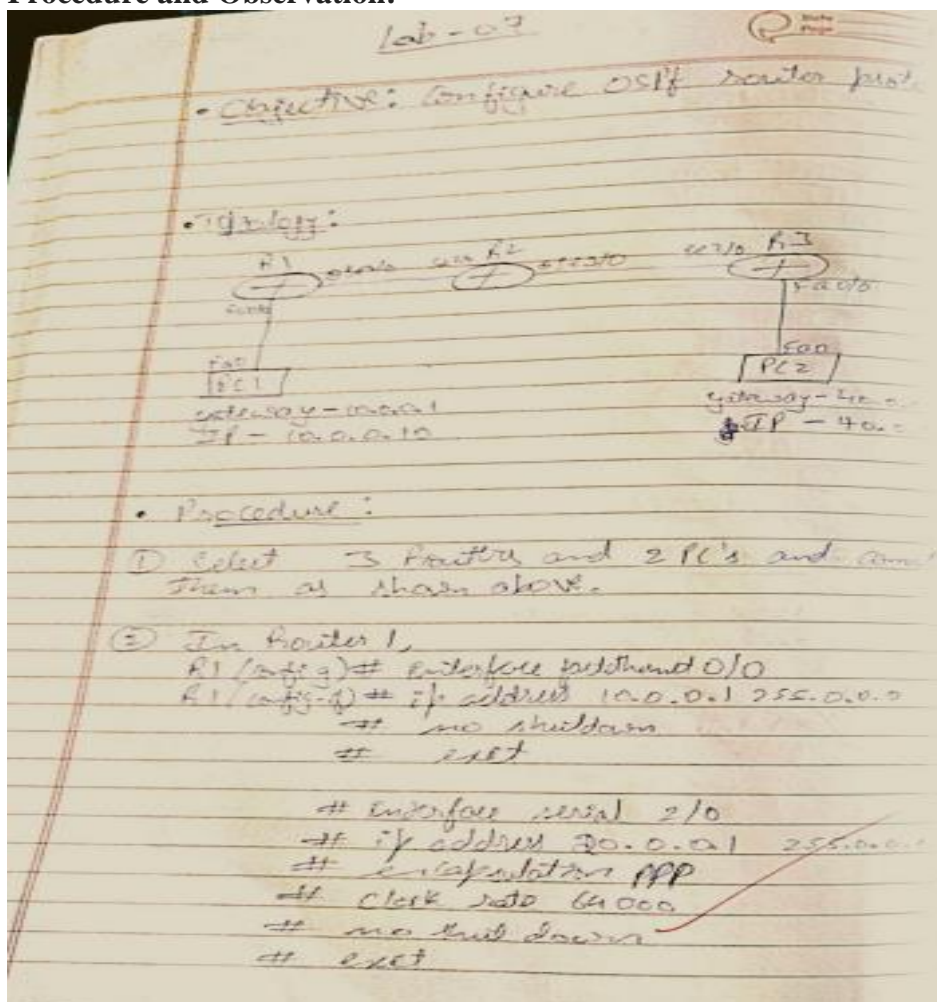 Procedure and Observation:
Lab - 07
• Objective: Configure OSPF router
• Topology:
R1 R2 se2/0 R3
se3/0 fa0/0
Fa0 Fa0
PC1 PC2
gateway - 10.0.0.1 gateway - 40.
IP - 10.0.0.10 IP - 40.
• Procedure:
① Select 3 Routers and 2 PC's and
them as shown above.
② In Router 1,
R1(config)# interface fastethernet 0/0
R1(config-if)# ip address 10.0.0.1 255.0.0.0
# no shutdown
# exit
# interface serial 2/0
# ip address 20.0.0.1 255.0.0.
# encapsulation PPP
# clock rate 64000
# no shut down
# exit